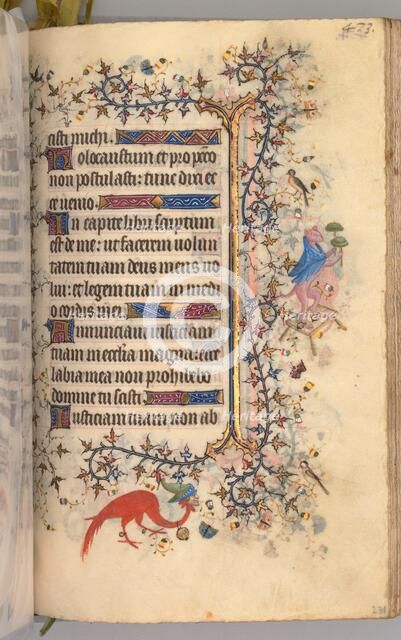 433.
cisti michi.
Holocaustum et pro pcco
non postulasti: tunc dixi ec
ce uenio.
In capite libri scriptum
est de me: ut facerem uolun
tatem tuam deus meus uo
lui: et legem tuam in medi
o cordis mei.
Annunciaui iusticiam
tuam in ecclia magna: ecce
labia mea non prohibebo
domine tu scisti.
Iusticiam tuam non ab
Heritage
Heritage
Heritage
Heritage
Heritage